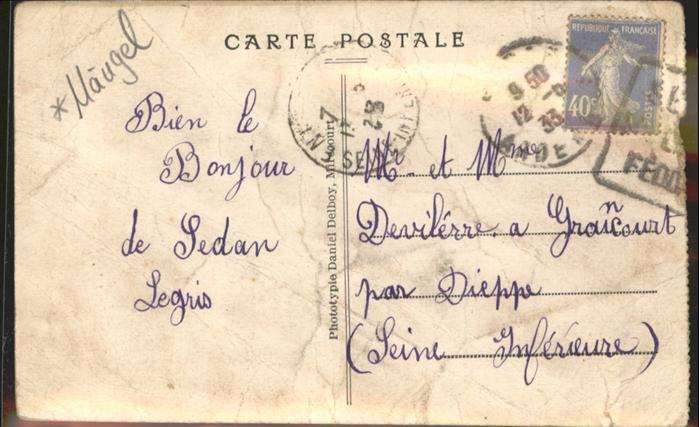 *Mängel
CARTE POSTALE
REPUBLIQUE FRANÇAISE
40c
POSTES
9 50
12
33
Bien le
Bonjour
de Sedan
Legris
Phototypie Daniel Delboy, Mirecourt
Mr et Mme
Devilérre a Graincourt
par Dieppe
(Seine Inférieure)